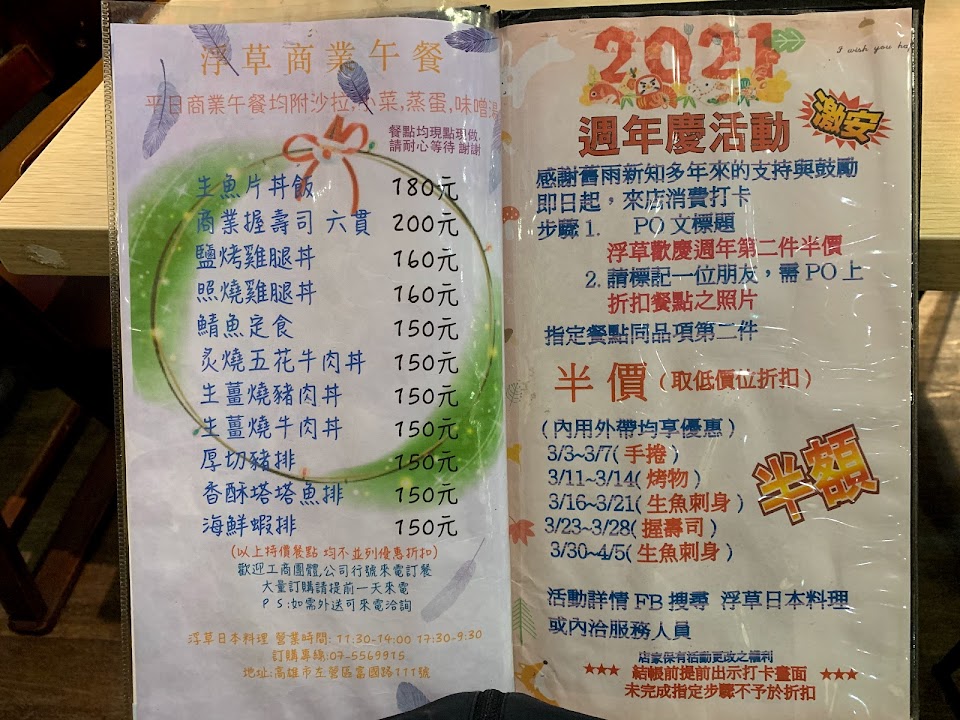 浮草商業午餐
平日商業午餐均附沙拉,小菜,蒸蛋,味噌湯
餐點均現點現做.
請耐心等待 謝謝
生魚片丼飯 180元
商業握壽司 六貫 200元
鹽烤雞腿丼 160元
照燒雞腿丼 160元
鯖魚定食 150元
炙燒五花牛肉丼 150元
生薑燒豬肉丼 150元
生薑燒牛肉丼 150元
厚切豬排 150元
香酥塔塔魚排 150元
海鮮蝦排 150元
(以上特價餐點 均不並列優惠折扣)
歡迎工商團體,公司行號來電訂餐
大量訂購請提前一天來電
PS:如需外送可來電洽詢
浮草日本料理 營業時間: 11:30-14:00 17:30-9:30
訂購專線:07-5569915
地址:高雄市左營區富國路111號
I wish you ha
2021
週年慶活動
激安
感謝舊雨新知多年來的支持與鼓勵
即日起，來店消費打卡
步驟1. PO文標題
浮草歡慶週年第二件半價
2.請標記一位朋友，需PO上
折扣餐點之照片
指定餐點同品項第二件
半價(取低價位折扣)
(內用外帶均享優惠)
3/3~3/7(手捲)
3/11~3/14(烤物)
3/16~3/21(生魚刺身)
3/23~3/28(握壽司)
3/30~4/5(生魚刺身)
半額
活動詳情FB搜尋 浮草日本料理
或內洽服務人員
店家保有活動更改之權利
★★★ 結帳前提前出示打卡畫面 ★★★
未完成指定步驟不予於折扣